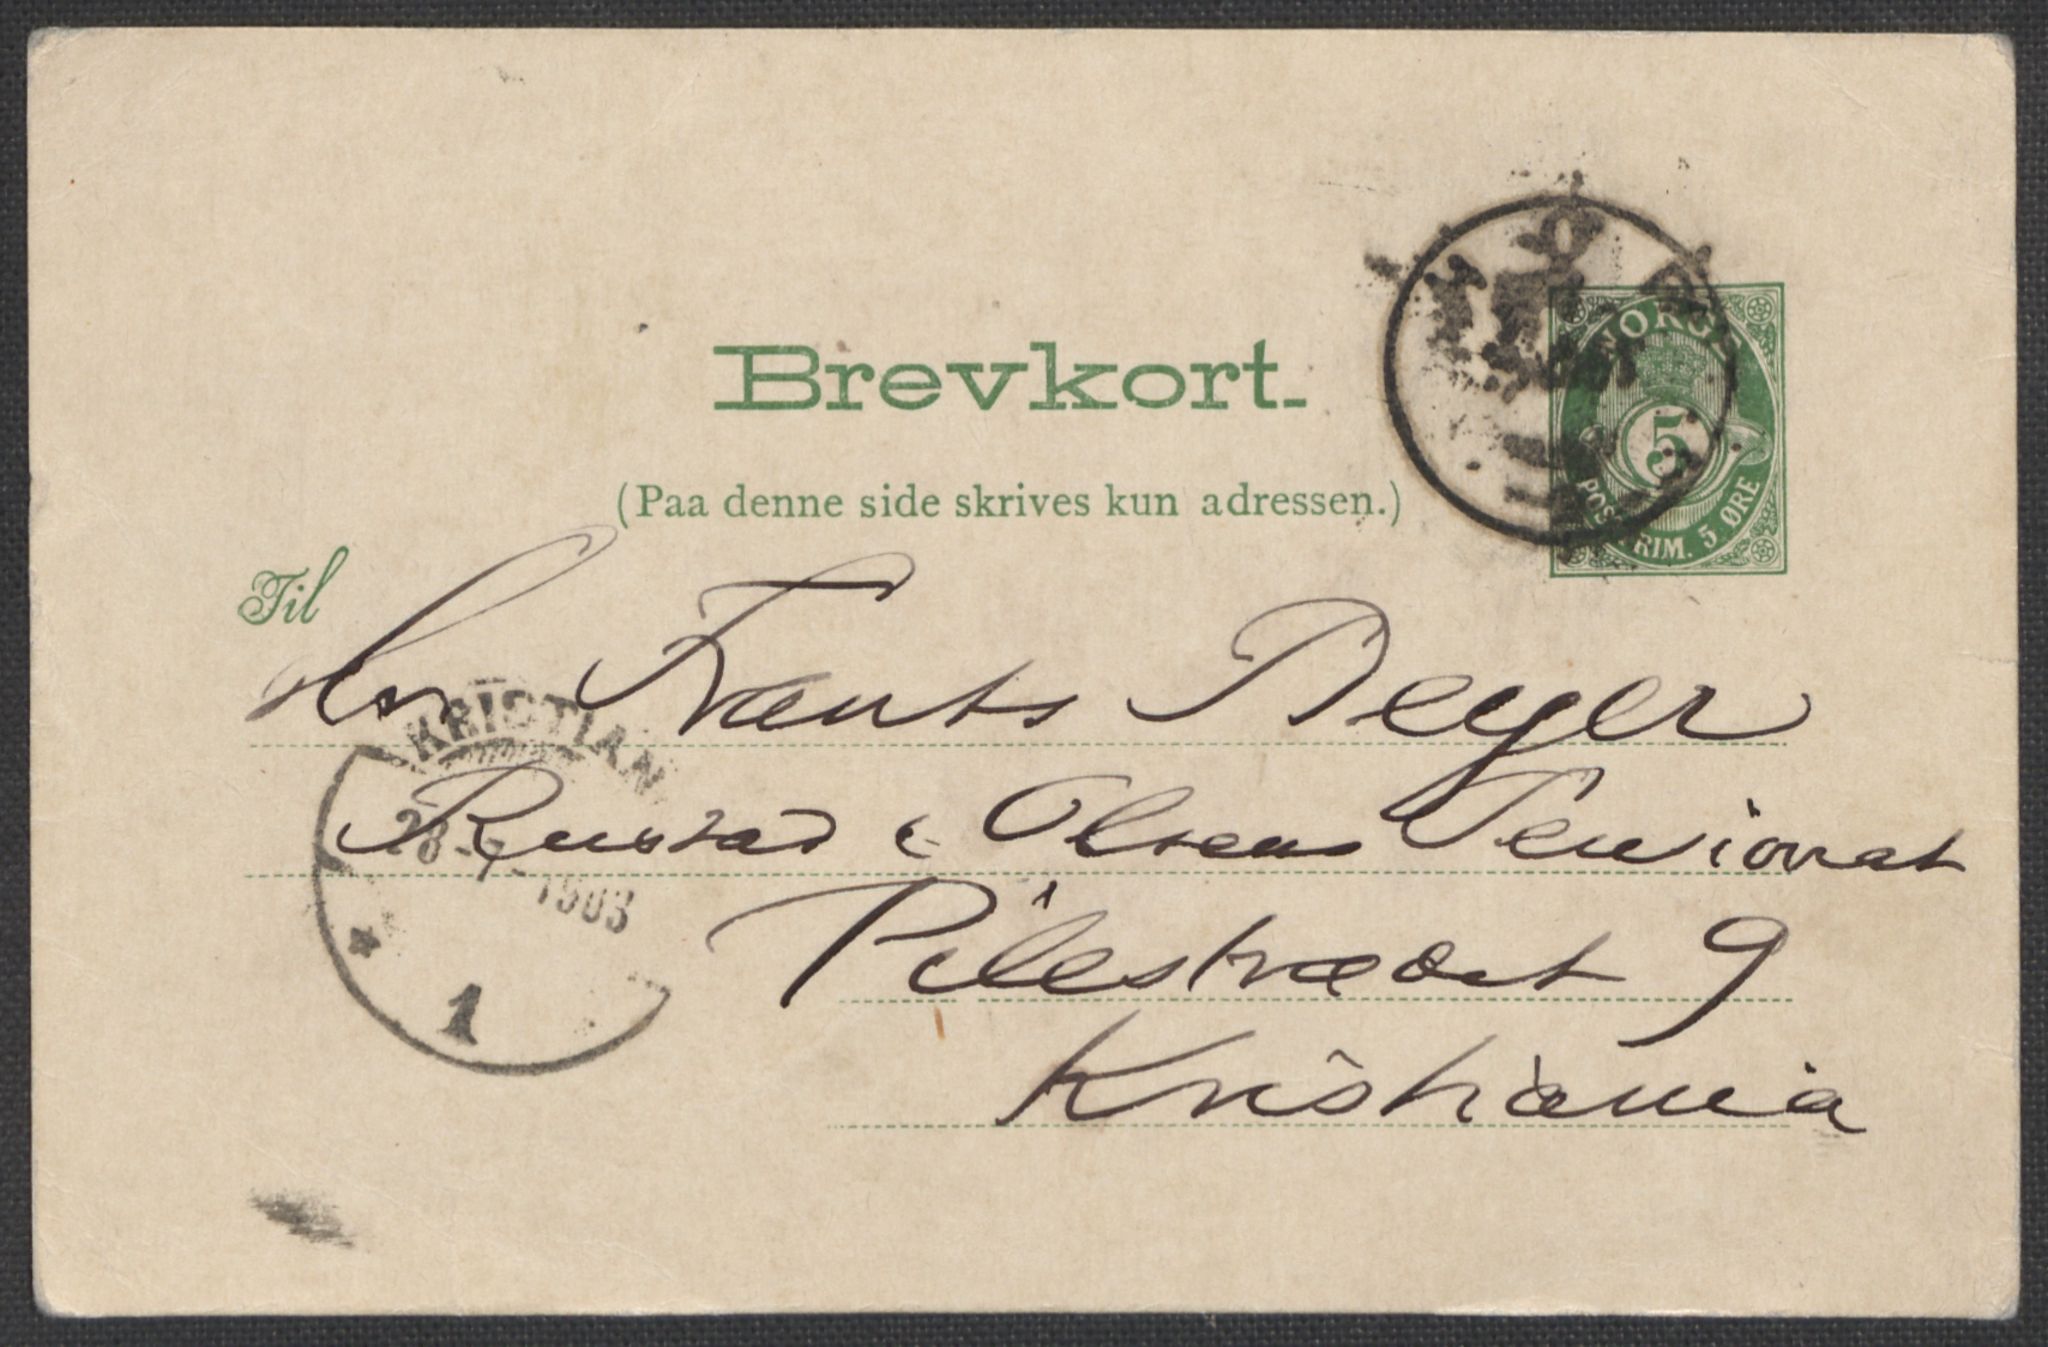 Brevkort.
(Paa denne side skrives kun adressen.)
NORGE
5
POSTFRIM. 5 ØRE
Til
Hr Frants Beyer
Rustad & Olsens Pensionat
Pilestrædet 9
Kristiania
KRISTIAN
28-7-1903
1